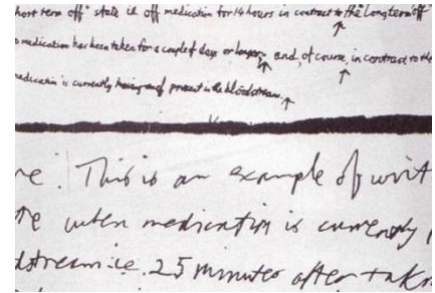 hort term off" state ie off medication for 14 hours in contrast to the long term "off
medication has been taken for a couple of days or longer, and, of course, in contrast to the
medication is currently having and present in the bloodstream.
re. This is an example of writ
te when medication is currently
dstream ie. 25 minutes after taki